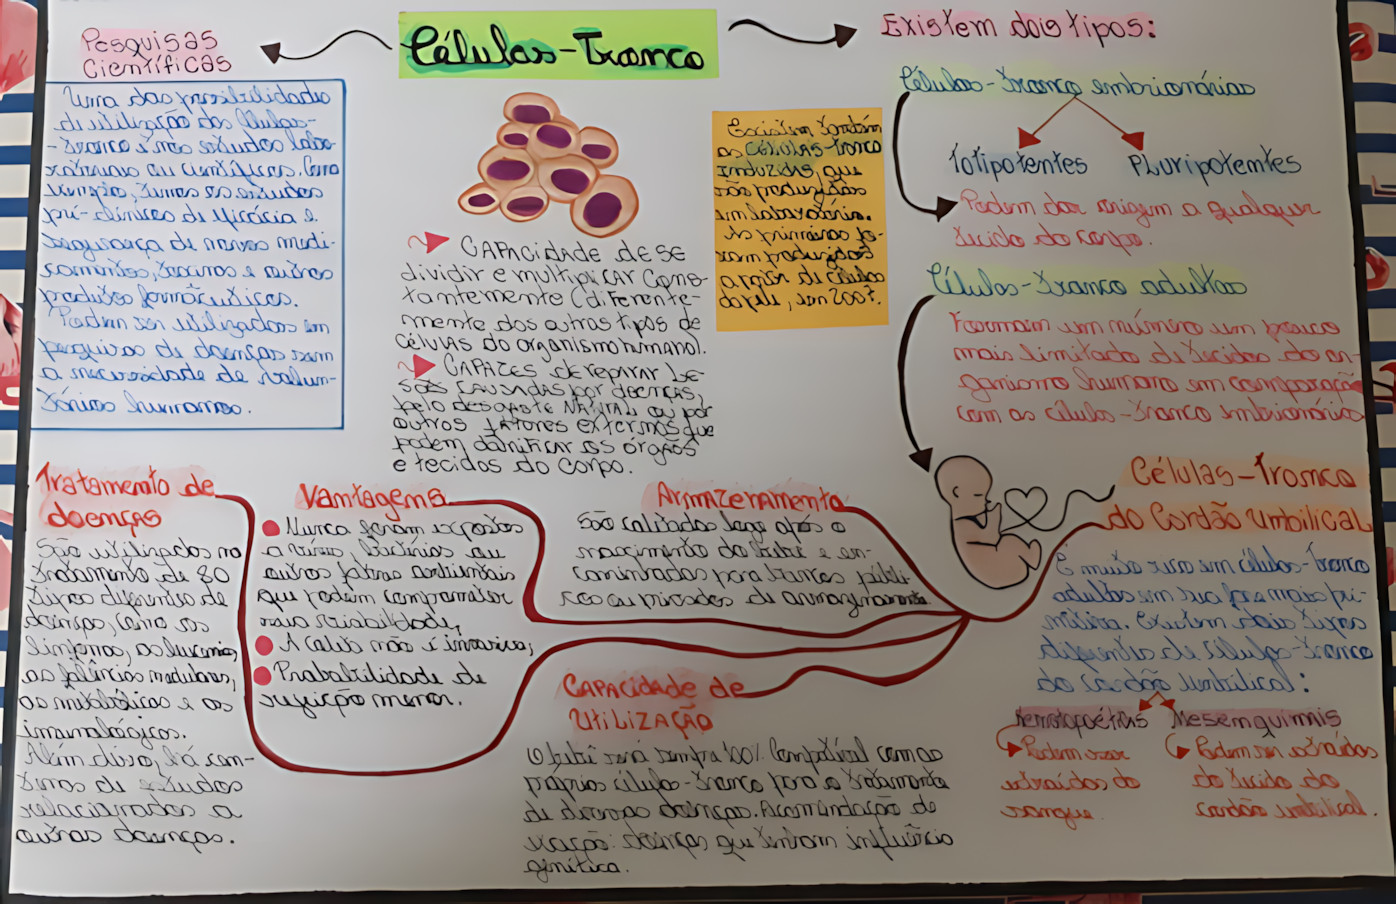 Células-Tronco
Pesquisas
Científicas
Uma das possibilidades
de utilização das Células-
-tronco é nos estudos labo-
ratoriais ou científicos. Como
exemplo, temos os estudos
pré-clínicos de eficácia e
segurança de novos medi-
camentos, vacinas e outros
produtos farmacêuticos.
Podem ser utilizadas em
pesquisas de doenças sem
a necessidade de volun-
tários humanos.
CAPACIDADE DE SE
dividir e multiplicar Cons-
tantemente (diferente-
mente dos outros tipos de
células do organismo humano).
CAPAZES DE REPARAR LE-
SÕES CAUSADAS por doenças,
pelo desgaste NATURAL ou por
outros fatores externos que
podem danificar os órgãos
e tecidos do corpo.
Existem também
as Células-tronco
induzidas, que
são produzidas
em laboratório.
As primeiras fo-
ram produzidas
a partir de células
da pele, em 2007.
Existem dois tipos:
Células-tronco embrionárias
Totipotentes Pluripotentes
Podem dar origem a qualquer
tecido do corpo.
Células-tronco adultas
Formam um número um pouco
mais limitado de tecidos do or-
ganismo humano em comparação
com as células-tronco embrionárias
Células-Tronco
do Cordão Umbilical
É muito rico em células-tronco
adultas em sua fase mais pri-
mitiva. Existem dois tipos
diferentes de células-tronco
do cordão umbilical:
Hematopoéticas Mesenquimais
Podem ser
extraídas do
sangue.
Podem ser extraídas
do tecido do
cordão umbilical.
Tratamento de
doenças
São utilizados no
tratamento de 80
tipos diferentes de
doenças, como os
linfomas, as leucemias,
as falências medulares,
as metabólicas e as
imunológicas.
Além disso, há cen-
tenas de estudos
relacionados a
outras doenças.
Vantagens
Nunca foram expostas
a vírus, bactérias ou
outros fatores ambientais
que podem comprometer
sua viabilidade;
A coleta não é invasiva;
Probabilidade de
rejeição menor.
Armazenamento
São coletadas logo após o
nascimento do bebê e en-
caminhadas para bancos públi-
cos ou privados de armazenamento
CAPACIDADE de
Utilização
O bebê será sempre 100% Compatível com as
próprias células-tronco para o tratamento
de diversas doenças.
doenças que tenham influência
genética.